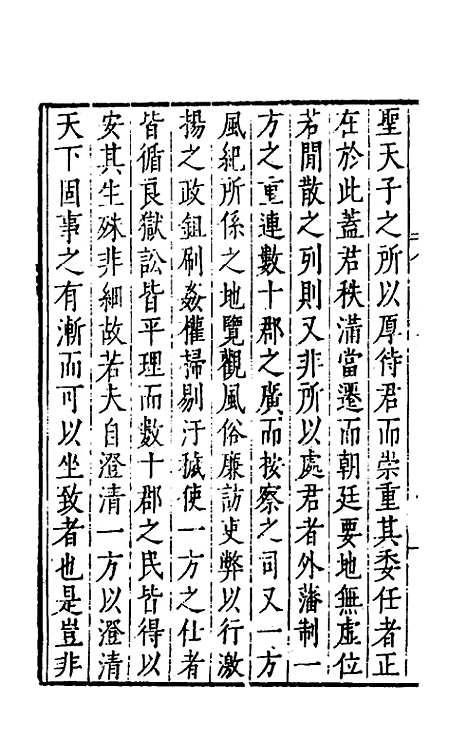 聖天子之所以厚待君而崇重其委任者正
在於此蓋君秩滿當遷而朝廷要地無虛位
若閒散之列則又非所以處君者外藩制一
方之重連數十郡之廣而按察之司又一方
風紀所係之地覽觀風俗廉訪吏弊以行激
揚之政鉏刷姦權掃剔汙穢使一方之仕者
皆循良獄訟皆平理而數十郡之民皆得以
安其生殊非細故若夫自澄清一方以澄清
天下固事之有漸而可以坐致者也是豈非